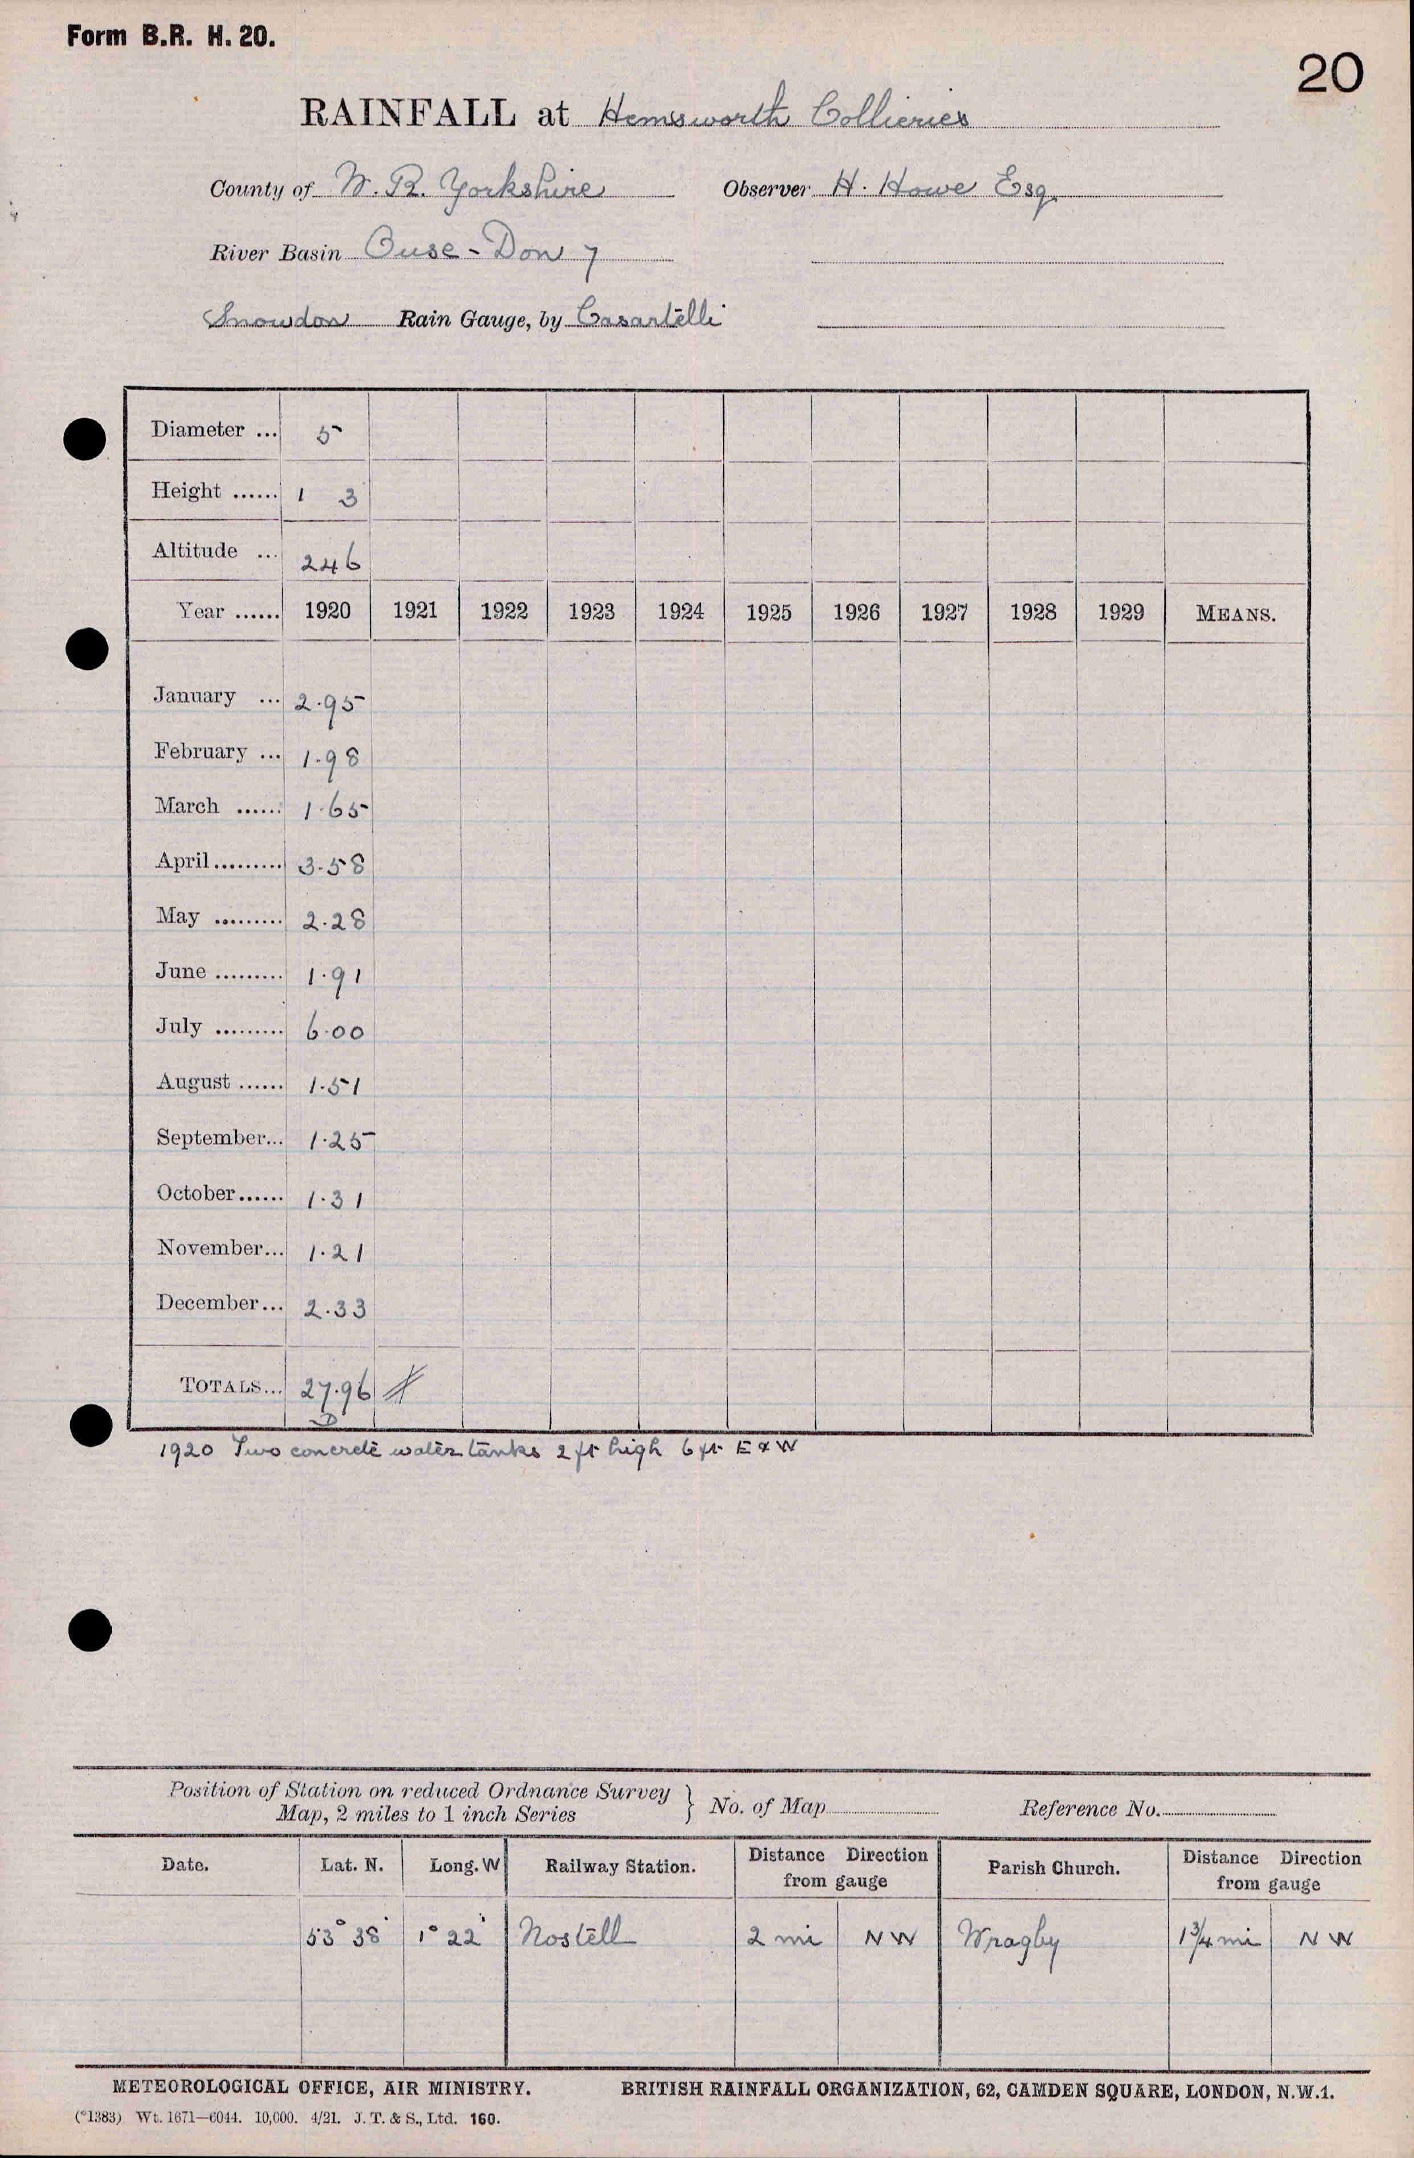 Form B.R. H. 20.
20
RAINFALL at Hemsworth Collieries
County of W. R. Yorkshire Observer H. Howe Esq.
River Basin Ouse - Don 7
Snowdon Rain Gauge, by Casartelli
Diameter ... 5
Height ...... 1 3
Altitude ... 246
Year ...... 1920 1921 1922 1923 1924 1925 1926 1927 1928 1929 MEANS.
January ... 2.95
February ... 1.98
March ...... 1.65
April ......... 3.58
May ......... 2.28
June ......... 1.91
July ......... 6.00
August ...... 1.51
September... 1.25
October...... 1.31
November... 1.21
December... 2.33
TOTALS... 27.96
D
1920 Two concrete water tanks 2 ft high 6 ft E & W
Position of Station on reduced Ordnance Survey
Map, 2 miles to 1 inch Series } No. of Map Reference No.
Date. Lat. N. Long. W Railway Station. Distance Direction from gauge Parish Church. Distance Direction from gauge
53° 38' 1° 22' Nostell 2 mi NW Wragby 1¾ mi NW
METEOROLOGICAL OFFICE, AIR MINISTRY. BRITISH RAINFALL ORGANIZATION, 62, CAMDEN SQUARE, LONDON, N.W.1.
(*1383) Wt. 1671—6044. 10,000. 4/21. J. T. & S., Ltd. 160.